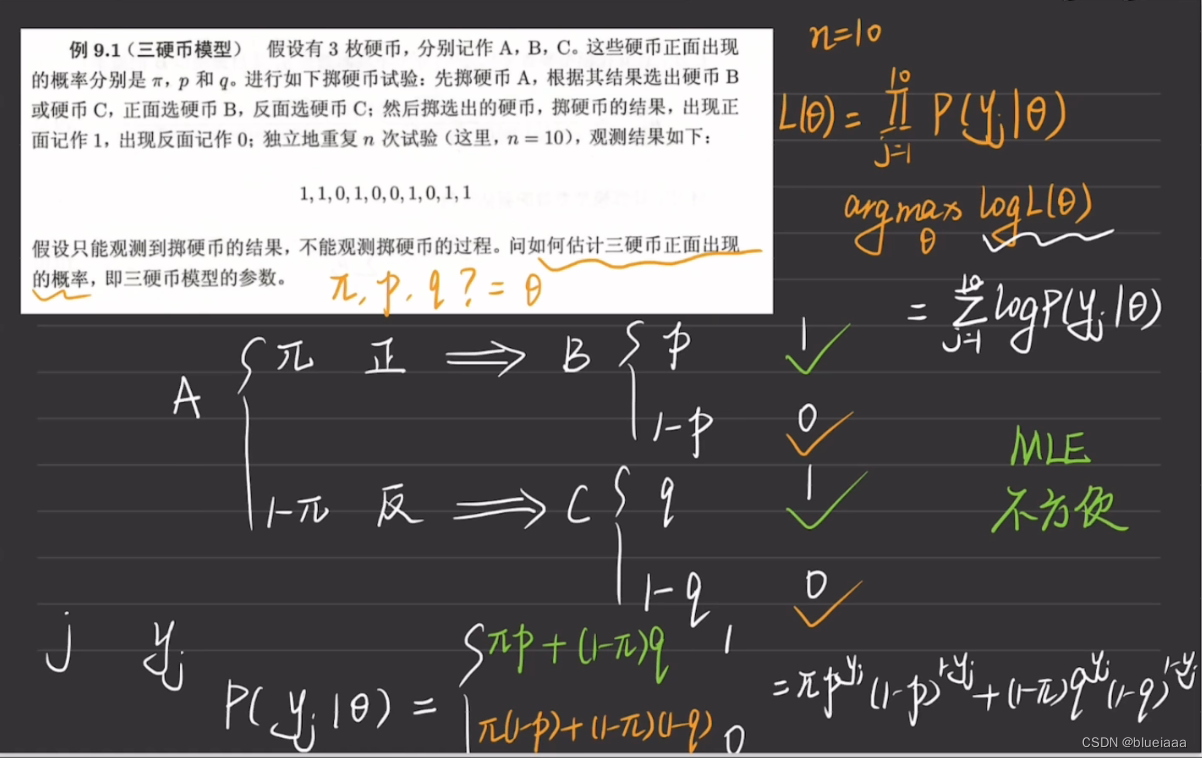 例 9.1（三硬币模型） 假设有 3 枚硬币，分别记作 A，B，C。这些硬币正面出现
的概率分别是 π，p 和 q。进行如下掷硬币试验：先掷硬币 A，根据其结果选出硬币 B
或硬币 C，正面选硬币 B，反面选硬币 C；然后掷选出的硬币，掷硬币的结果，出现正
面记作 1，出现反面记作 0；独立地重复 n 次试验（这里，n = 10），观测结果如下：
1, 1, 0, 1, 0, 0, 1, 0, 1, 1
假设只能观测到掷硬币的结果，不能观测掷硬币的过程。问如何估计三硬币正面出现
的概率，即三硬币模型的参数。
π, p, q ? = θ
n=10
L(θ) = ∏_{j=1}^{10} P(y_j|θ)
argmax_θ logL(θ)
= ∑_{j=1}^{10} logP(y_j|θ)
A { π 正 ⟹ B { p 1
1-p 0
1-π 反 ⟹ C { q 1
1-q 0
MLE
不方便
j y_j
P(y_j|θ) = { πp + (1-π)q 1
π(1-p) + (1-π)(1-q) 0
= πp^{y_j}(1-p)^{1-y_j} + (1-π)q^{y_j}(1-q)^{1-y_j}
CSDN @blueiaaa